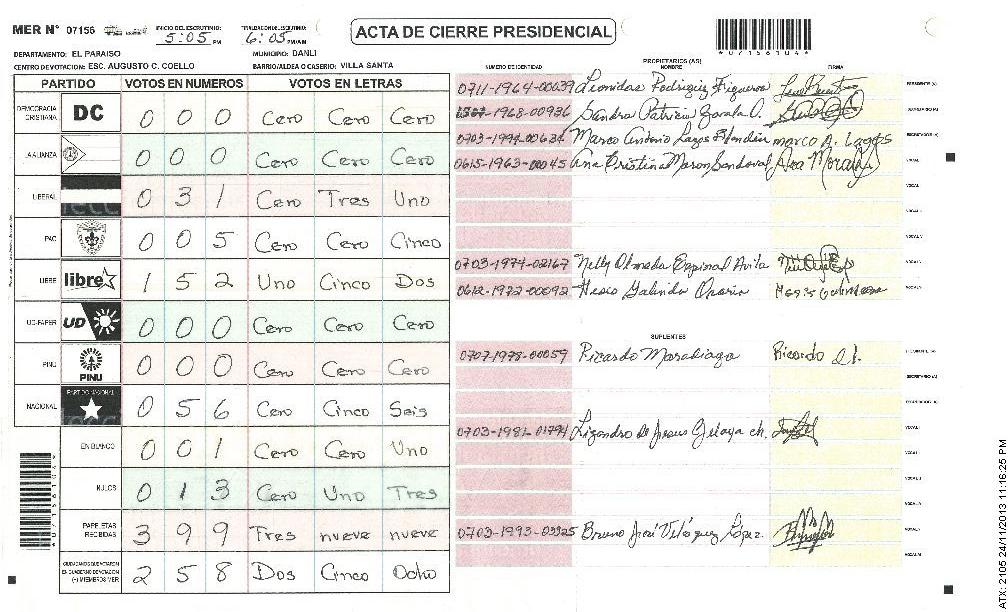 MER N° 07156 INICIO DEL ESCRUTINIO: 5:05 PM 6:05 PM/AM
ACTA DE CIERRE PRESIDENCIAL
*07156104*
DEPARTAMENTO: EL PARAISO MUNICIPIO: DANLI
CENTRO DE VOTACION: ESC. AUGUSTO C. COELLO BARRIO/ALDEA O CASERIO: VILLA SANTA
PARTIDO VOTOS EN NUMEROS VOTOS EN LETRAS
DEMOCRACIA CRISTIANA DC 0 0 0 Cero Cero Cero
LA ALIANZA 0 0 0 Cero Cero Cero
LIBERAL 0 3 1 Cero Tres Uno
PAC 0 0 5 Cero Cero Cinco
LIBRE libre 1 5 2 Uno Cinco Dos
UD-FAPER UD 0 0 0 Cero Cero Cero
PINU PINU 0 0 0 Cero Cero Cero
NACIONAL PARTIDO NACIONAL 0 5 6 Cero Cinco Seis
EN BLANCO 0 0 1 Cero Cero Uno
NULOS 0 1 3 Cero Uno Tres
PAPELETAS RECIBIDAS 3 9 9 Tres nueve nueve
CIUDADANOS QUE VOTARON EN CUADERNO DE VOTACION (+) MIEMBROS MER 2 5 8 Dos Cinco Ocho
PROPIETARIOS (AS)
NUMERO DE IDENTIDAD NOMBRE FIRMA
0711-1964-00039 Leonidas Rodriguez Figueroa PRESIDENTE (A)
1968-00936 Sandra Patricia Zavala O.
marco A. Lagos
0615-1963-00045 Ana Cristina Sandoval Ana VOCAL
VOCAL I
VOCAL
VOCAL
0703-1974-02167 Nelly Olmeda Espinal Avila VOCAL
0612-1972-00092 Galindo VOCAL
SUPLENTES
0707-1978-00059 Ricardo Maradiaga Ricardo
SECRETARIO (A)
0703-1981-01794 Lizandro de Jesus Gelaya ch. VOCAL
0703-1993-03325 Bruno José Velásquez López. VOCAL
*0715610*
ATX: 2105 24/11/2013 11:16:25 PM